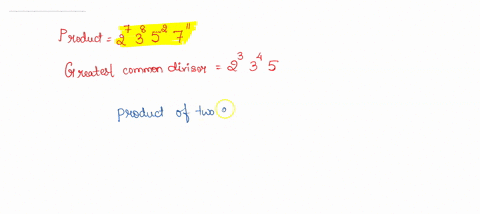 Product = 2⁷ 3⁸ 5² 7¹¹
Greatest common divisor = 2³ 3⁴ 5
product of two